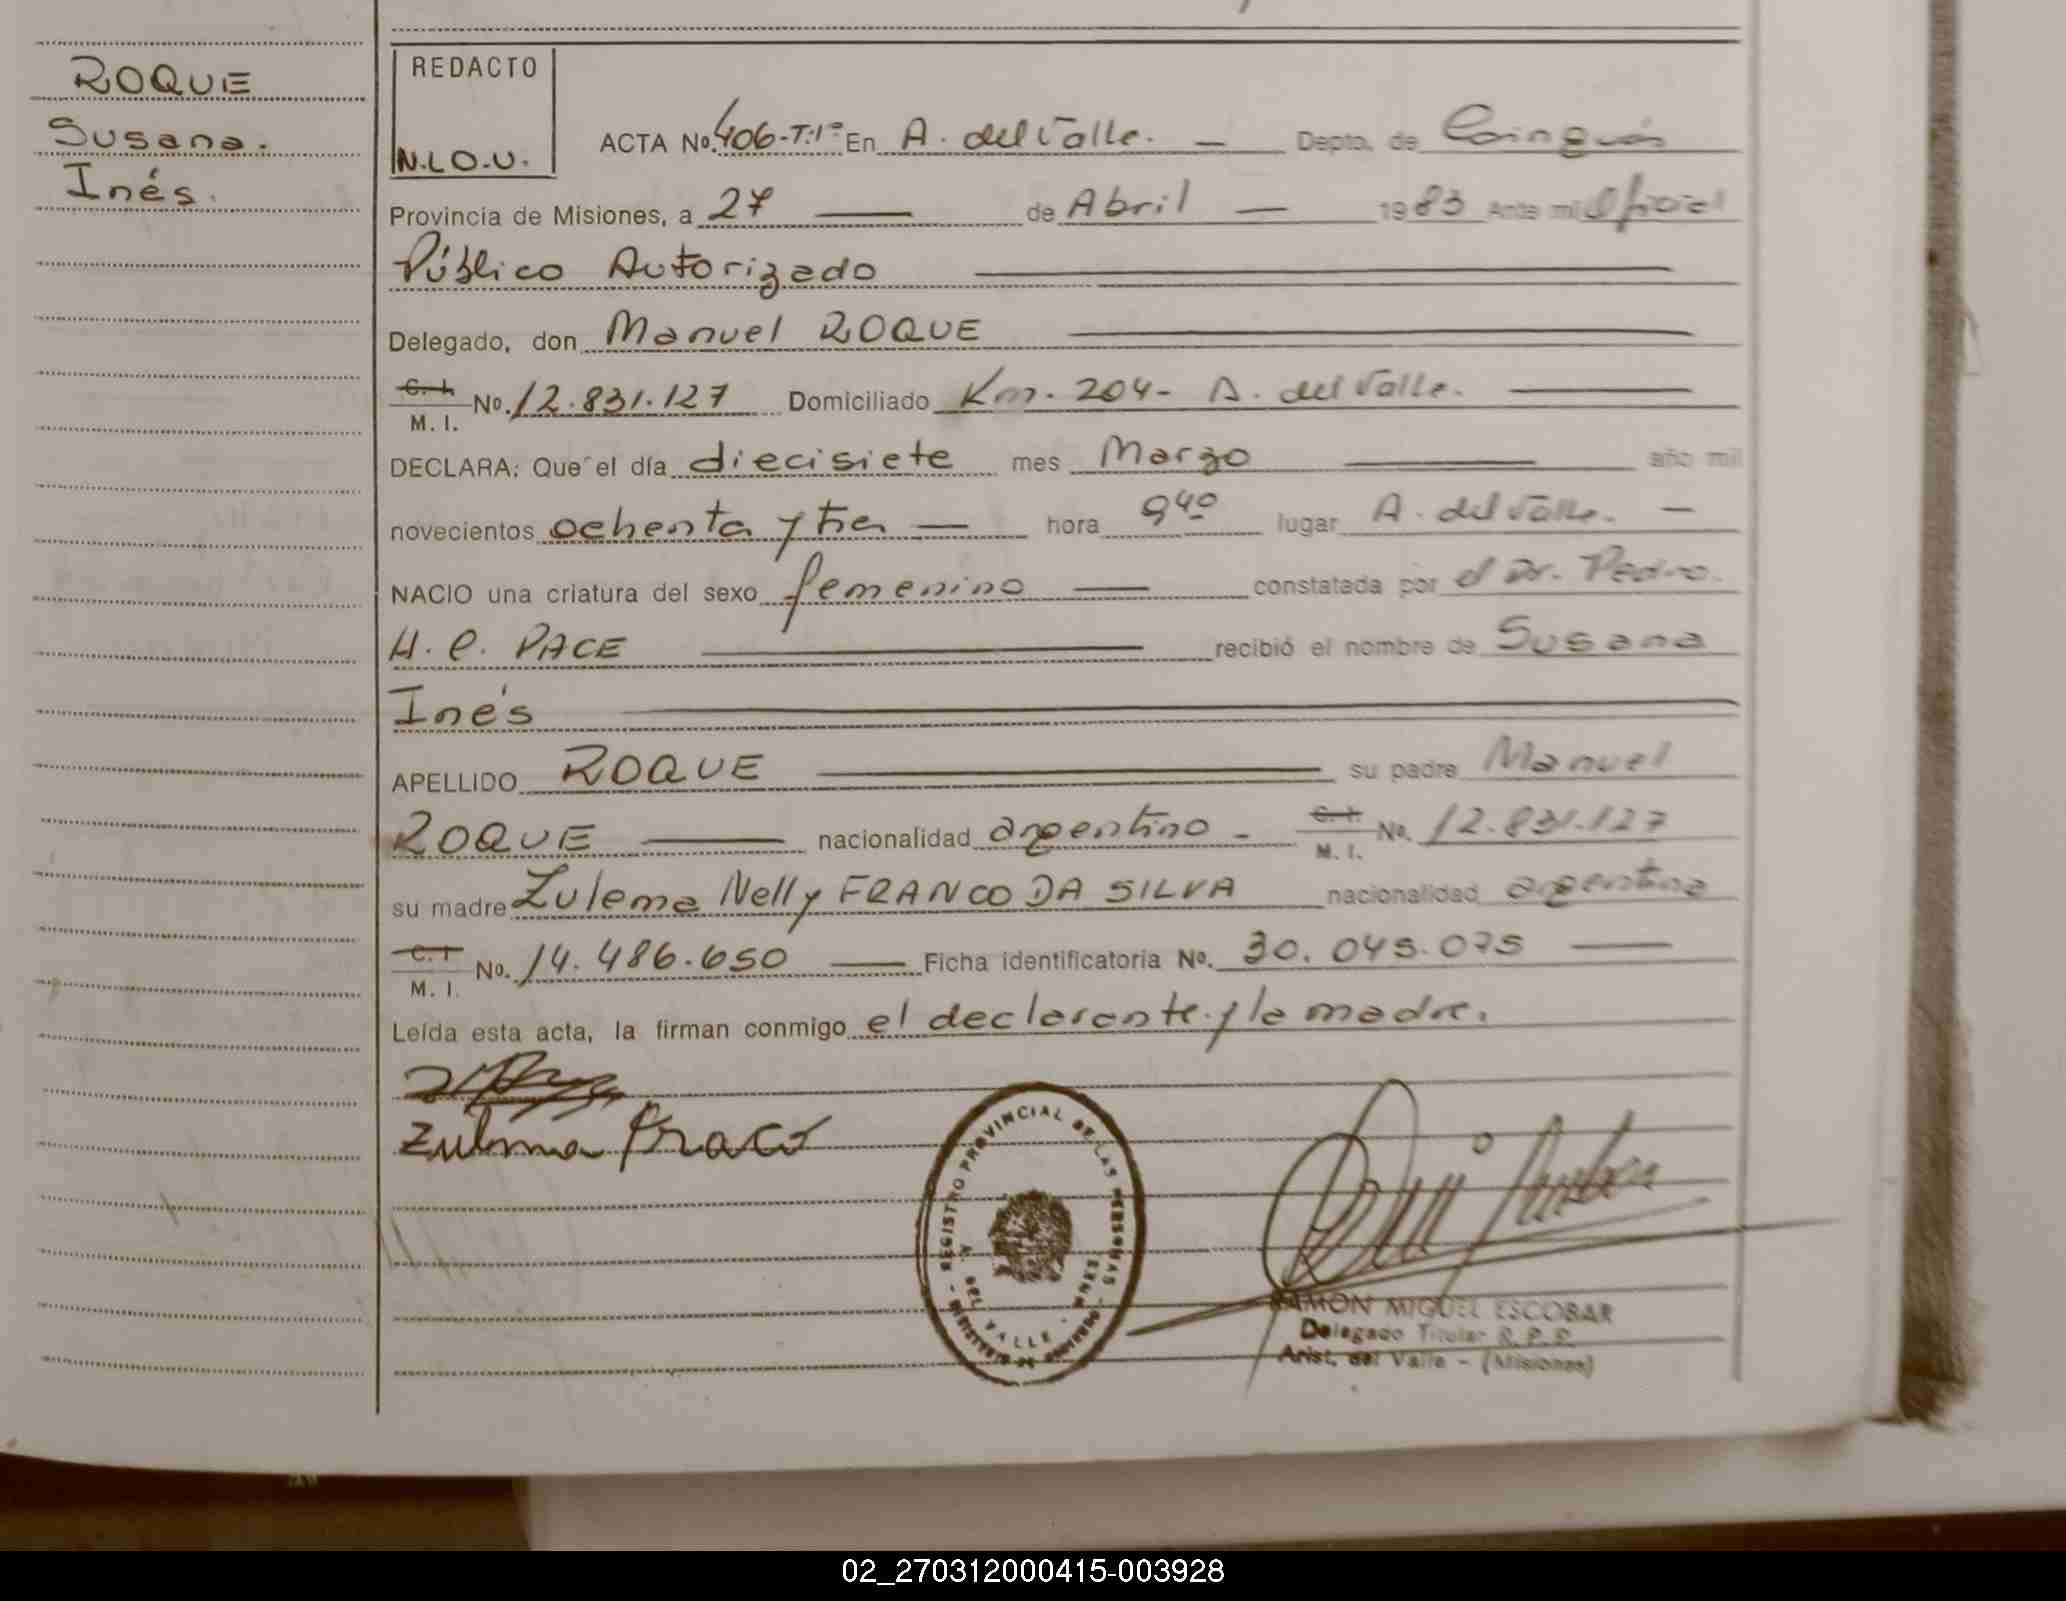 ROQUE
Susana.
Inés.
REDACTO
N.L.O.U.
ACTA No. 406-T:1º En A. del Valle. — Depto. de Cainguás
Provincia de Misiones, a 27 — de Abril — 1983 Ante mi Oficial
Público Autorizado —
Delegado, don Manuel ROQUE —
C. I.
M. I. No. 12.831.127 Domiciliado Km. 204- A. del Valle. —
DECLARA: Que el día diecisiete mes Marzo — año mil
novecientos ochenta y tres — hora 9 40 lugar A. del Valle. —
NACIO una criatura del sexo femenino — constatada por el Dr. Pedro.
H. C. PACE — recibió el nombre de Susana
Inés —
APELLIDO ROQUE — su padre Manuel
ROQUE — nacionalidad argentino - C. I. M. I. No. 12.831.127
su madre Zulema Nelly FRANCO DA SILVA nacionalidad argentina
C. I.
M. I. No. 14.486.650 — Ficha identificatoria No. 30.045.075 —
Leída esta acta, la firman conmigo el declarante y la madre.
REGISTRO PROVINCIAL DE LAS PERSONAS
DEL VALLE
RAMON MIGUEL ESCOBAR
Delegado Titular R. P. P.
Arist. del Valle - (Misiones)
02_270312000415-003928